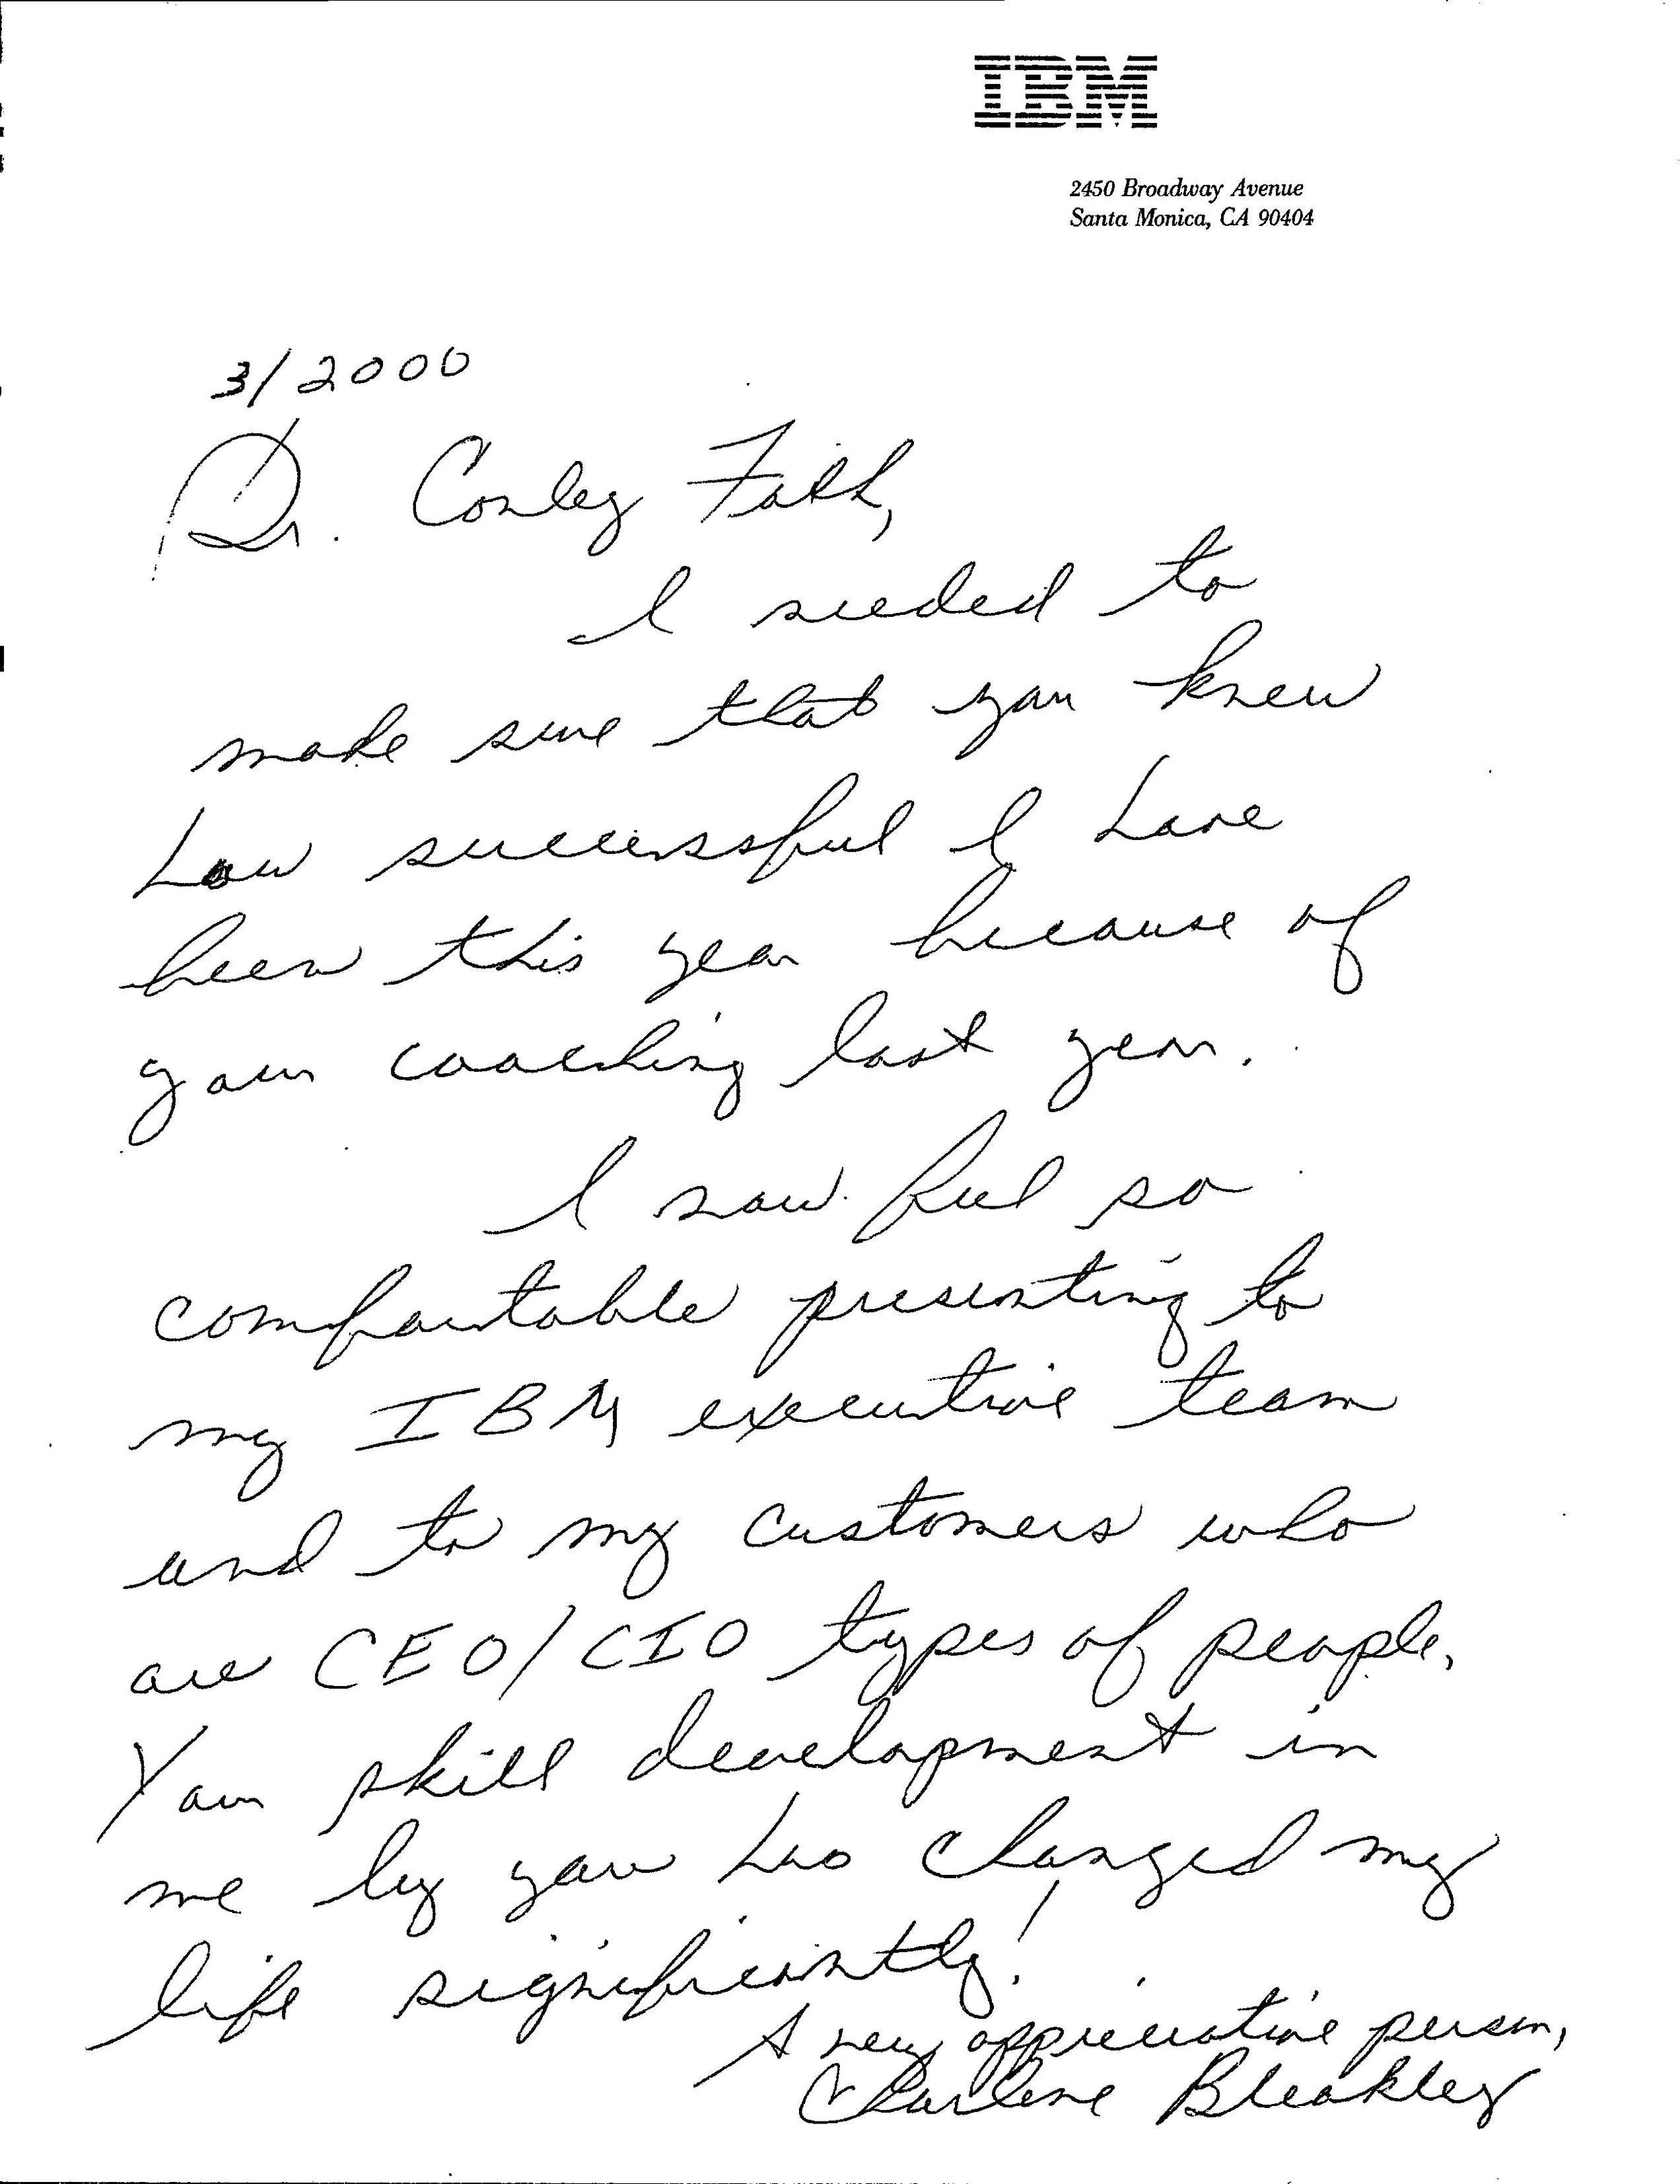 IBM
2450 Broadway Avenue
Santa Monica, CA 90404
3/2000
Dr. Conley Falk,
I needed to
make sure that you knew
how successful I have
been this year because of
your coaching last year.
I now feel so
comfortable presenting to
my IBM executive team
and to my customers who
are CEO/CIO types of people.
Your skill development in
me by you has changed my
life significantly!
A very appreciative person,
Charlene Bleakley